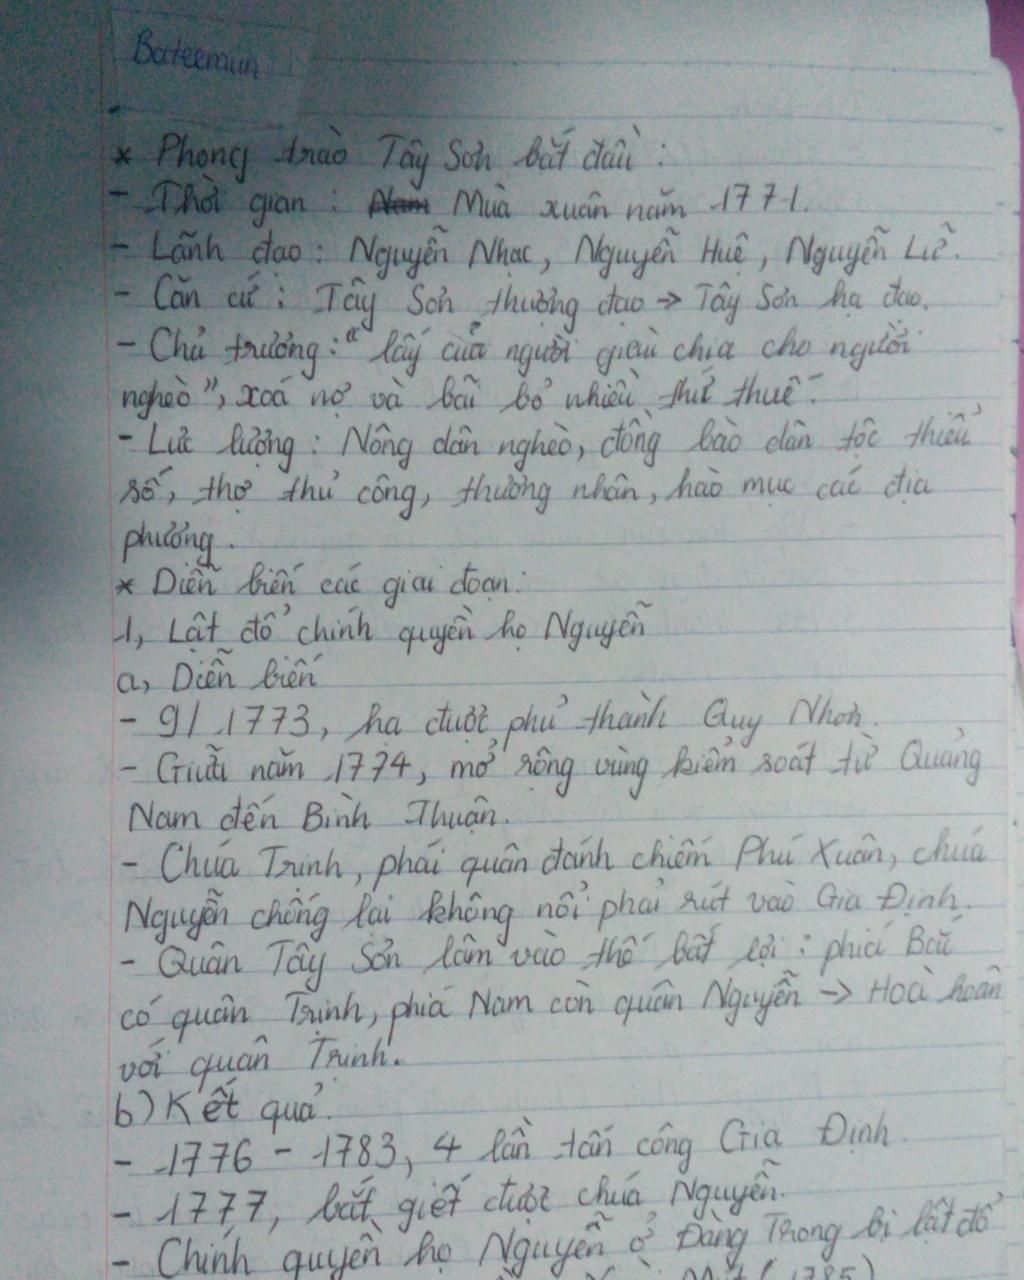 Bateemun
* Phong trào Tây Sơn bắt đầu :
- Thời gian : Nam Mùa xuân năm 1771.
- Lãnh đạo : Nguyễn Nhạc, Nguyễn Huệ, Nguyễn Lữ.
- Căn cứ : Tây Sơn thượng đạo → Tây Sơn hạ đạo.
- Chủ trương : " lấy của người giàu chia cho người
nghèo ", xoá nợ và bãi bỏ nhiều thứ thuế.
- Lực lượng : Nông dân nghèo, đồng bào dân tộc thiểu
số, thợ thủ công, thương nhân, hào mục các địa
phương.
* Diễn biến các giai đoạn :
1, Lật đổ chính quyền họ Nguyễn
a, Diễn biến
- 9/ 1773, hạ được phủ thành Quy Nhơn.
- Giữa năm 1774, mở rộng vùng kiểm soát từ Quảng
Nam đến Bình Thuận.
- Chúa Trịnh, phái quân đánh chiếm Phú Xuân, chúa
Nguyễn chống lại không nổi phải rút vào Gia Định.
- Quân Tây Sơn lâm vào thế bất lợi : phía Bắc
có quân Trịnh, phía Nam còn quân Nguyễn → Hoà hoãn
với quân Trịnh.
b) Kết quả.
- 1776 - 1783, 4 lần tấn công Gia Định.
- 1777, bắt giết được chúa Nguyễn.
- Chính quyền họ Nguyễn ở Đàng Trong bị lật đổ
(1785)